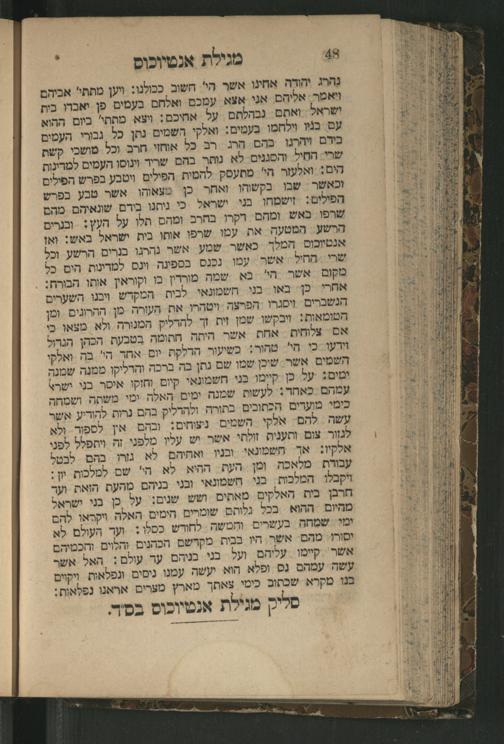 48
מגילת אנטיוכוס
נהרג יהודה אחינו אשר הי׳ חשוב ככולנו: ויען מתתי׳ אביהם
ויאמר אליהם אני אצא עמכם ואלחם בעמים פן יאבדו בית
ישראל ואתם נבהלתם על אחיכם: ויצא מתתי׳ ביום ההוא
עם בניו וילחמו בעמים: ואלקי השמים נתן כל גבורי העמים
בידם ויהרגו בהם הרג רב כל אוחזי חרב וכל מושכי קשת
שרי החיל והסגנים לא נותר בהם שריד וינוסו העמים למדינות
הים: ואלעזר הי׳ מתעסק להמית הפילים ויטבע בפרש הפילים
וכאשר שבו בקשוהו ואחר כן מצאוהו אשר טבע בפרש
הפילים: וישמחו בני ישראל כי ניתנו בידם שונאיהם מהם
שרפו באש ומהם דקרו בחרב ומהם תלו על העץ: ובגריס
הרשע המטעה את עמו שרפו אותו בית ישראל באש: ואז
אנטיוכוס המלך כאשר שמע אשר נהרגו בגריס הרשע וכל
שרי החיל אשר עמו נכנס בספינה וינס למדינות הים כל
מקום אשר הי׳ בא שמה מורדין בו וקוראין אותו הבורח:
אחרי כן באו בני חשמונאי לבית המקדש ויבנו השערים
הנשברים ויסגרו הפרצה ויטהרו את העזרה מן ההרוגים ומן
הטומאות: ויבקשו שמן זית זך להדליק המנורה ולא מצאו כי
אם צלוחית אחת אשר היתה חתומה בטבעת הכהן הגדול
וידעו כי הי׳ טהור: כשיעור הדלקת יום אחד הי׳ בה ואלקי
השמים אשר שיכן שמו שם נתן בה ברכה והדליקו ממנה שמנה
ימים: על כן קיימו בני חשמונאי קיום וחזקו איסר בני ישרא׳
עמהם כאחד: לעשות שמנה ימים האלה ימי משתה ושמחה
כימי מועדים הכתובים בתורה ולהדליק בהם נרות להודיע אשר
עשה להם אלקי השמים ניצוחים: ובהם אין לספוד ולא
לגזור צום ותענית זולתי אשר יש עליו מלפני זה ויתפלל לפני
אלקיו: אך חשמונאי ובניו ואחיהם לא גזרו בהם לבטל
עבודת מלאכה ומן העת ההיא לא הי׳ שם למלכות יון:
ויקבלו המלכות בני חשמונאי ובני בניהם מהעת הזאת ועד
חרבן בית האלקים מאתים ושש שנים: על כן בני ישראל
מהיום ההוא בכל גלותם שומרים הימים האלה ויקראו להם
ימי שמחה בעשרים וחמשה לחודש כסלו: ועד העולם לא
יסורו מהם אשר היו בבית מקדשם הכהנים והלוים והכמיהם
אשר קיימו עליהם ועל בני בניהם עד עולם: האל אשר
עשה עמהם נס ופלא הוא יעשה עמנו ניסים ונפלאות ויקוים
בנו מקרא שכתוב כימי צאתך מארץ מצרים אראנו נפלאות:
סליק מגילת אנטיוכוס בס״ד.